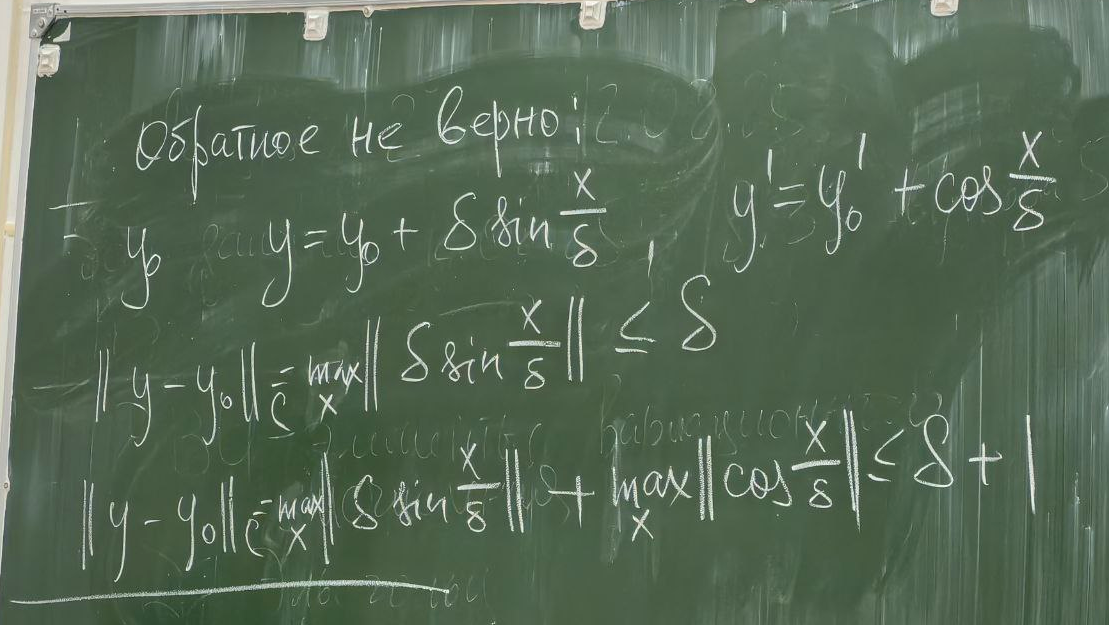 Обратное не верно:
y₀ y = y₀ + δ sin x/δ, y' = y₀' + cos x/δ
‖y - y₀‖_C = max_x ‖δ sin x/δ‖ ≤ δ
‖y - y₀‖_C = max_x ‖δ sin x/δ‖ + max_x ‖cos x/δ‖ ≤ δ + 1